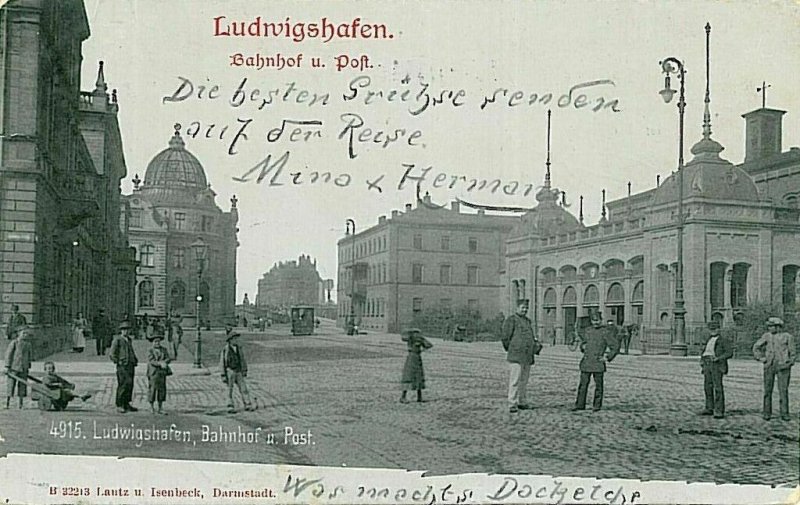 Ludwigshafen.
Bahnhof u. Post.
Die besten Grühse senden
auf der Reise
Mina x Hermann
4915. Ludwigshafen, Bahnhof u. Post.
B 22213 Lautz u. Isenbeck, Darmstadt.
Was machts